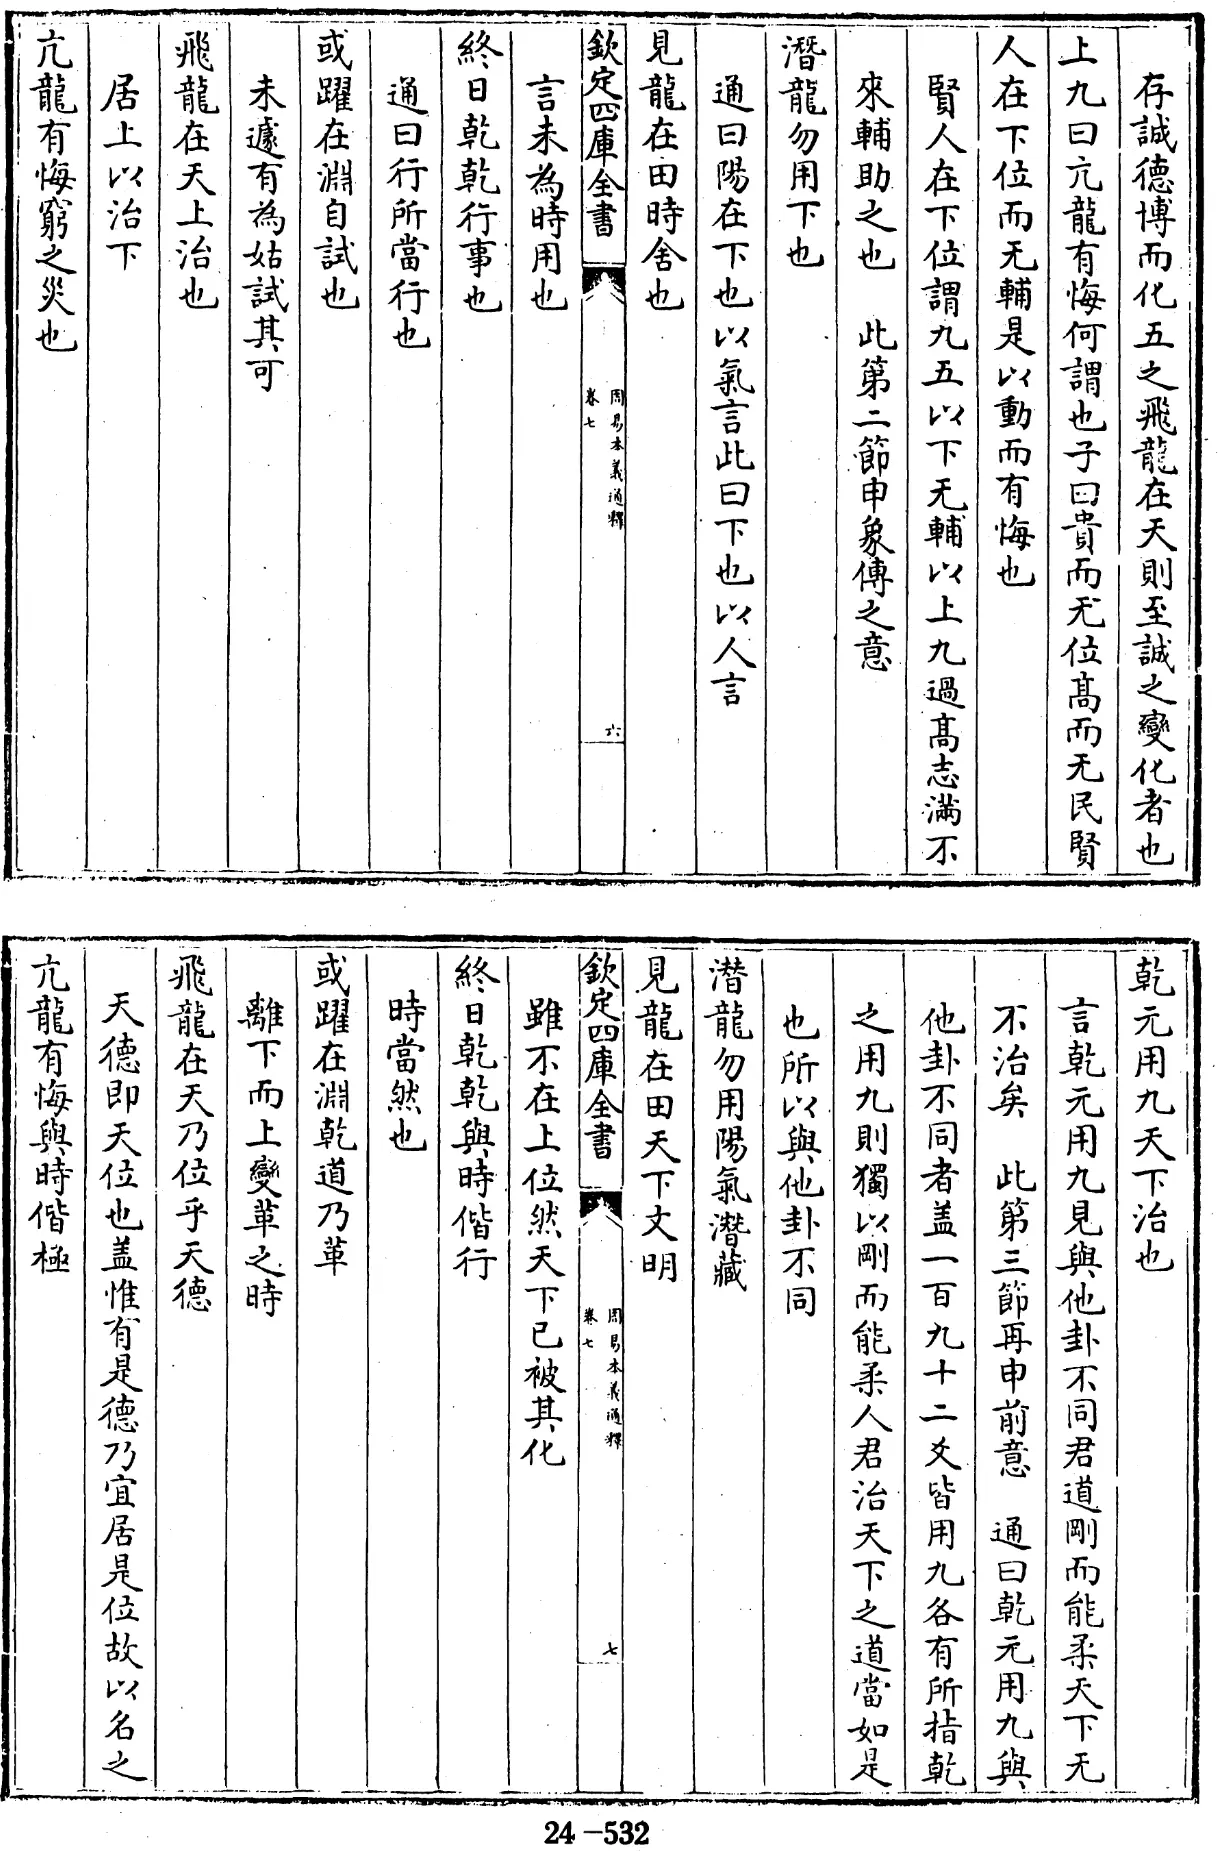 存誠德博而化五之飛龍在天則至誠之變化者也
上九曰亢龍有悔何謂也子曰貴而无位髙而无民賢
人在下位而无輔是以動而有悔也
賢人在下位謂九五以下无輔以上九過髙志滿不
來輔助之也　此第二節申象傳之意
潛龍勿用下也
通曰陽在下也以氣言此曰下也以人言
見龍在田時舍也
欽定四庫全書
周易本義通釋
卷七
六
言未為時用也
終日乾乾行事也
通曰行所當行也
或躍在淵自試也
未遽有為姑試其可
飛龍在天上治也
居上以治下
亢龍有悔窮之災也
乾元用九天下治也
言乾元用九見與他卦不同君道剛而能柔天下无
不治矣　此第三節再申前意　通曰乾元用九與
他卦不同者盖一百九十二爻皆用九各有所指乾
之用九則獨以剛而能柔人君治天下之道當如是
也所以與他卦不同
潛龍勿用陽氣潛藏
見龍在田天下文明
欽定四庫全書
周易本義通釋
卷七
七
雖不在上位然天下已被其化
終日乾乾與時偕行
時當然也
或躍在淵乾道乃革
離下而上變革之時
飛龍在天乃位乎天德
天德即天位也盖惟有是德乃宜居是位故以名之
亢龍有悔與時偕極
24-532